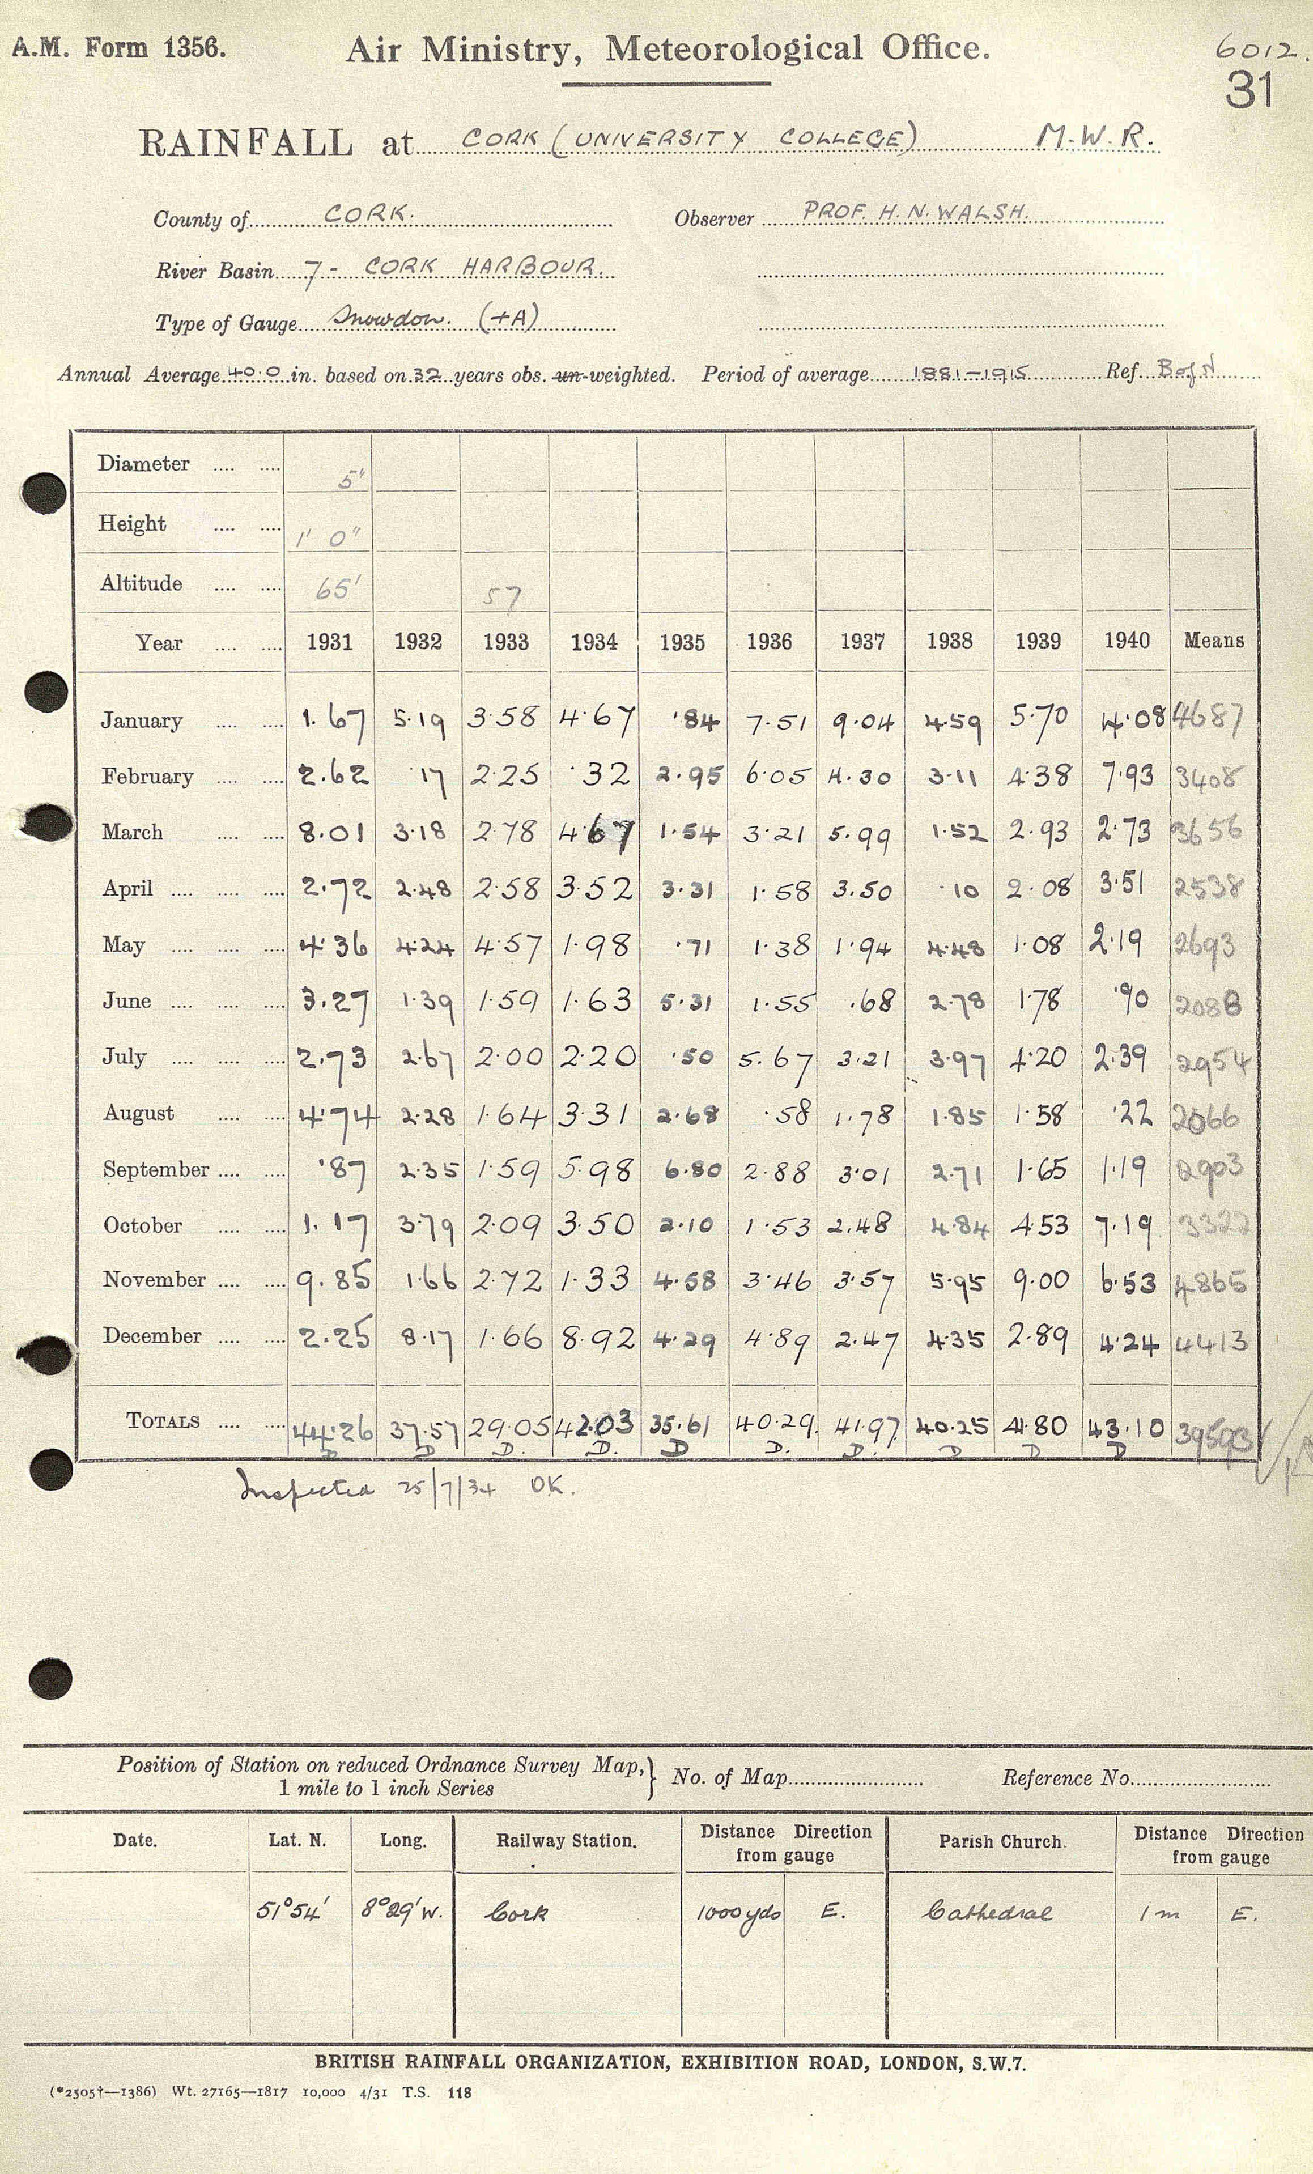 A.M. Form 1356. Air Ministry, Meteorological Office. 6012.
31
RAINFALL at CORK (UNIVERSITY COLLEGE) M.W.R.
County of CORK. Observer PROF. H. N. WALSH.
River Basin 7 - CORK HARBOUR.
Type of Gauge Snowdon. (+A)
Annual Average 40.0 in. based on 32 years obs. un-weighted. Period of average 1881-1915 Ref. B of N
Diameter .... .... 5"
Height .... .... 1' 0"
Altitude .... .... 65' 57
Year .... .... 1931 1932 1933 1934 1935 1936 1937 1938 1939 1940 Means
January .... .... 1.67 5.19 3.58 4.67 .84 7.51 9.04 4.59 5.70 4.08 4687
February .... .... 2.62 .17 2.25 .32 2.95 6.05 4.30 3.11 4.38 7.93 3408
March .... .... 8.01 3.18 2.78 4.67 1.54 3.21 5.99 1.52 2.93 2.73 3656
April .... .... .... 2.72 2.48 2.58 3.52 3.31 1.58 3.50 .10 2.08 3.51 2538
May .... .... .... 4.36 4.24 4.57 1.98 .71 1.38 1.94 4.48 1.08 2.19 2693
June .... .... .... 3.27 1.39 1.59 1.63 5.31 1.55 .68 2.78 1.78 .90 2088
July .... .... .... 2.73 2.67 2.00 2.20 .50 5.67 3.21 3.97 4.20 2.39 2954
August .... .... 4.74 2.28 1.64 3.31 2.68 .58 1.78 1.85 1.58 .22 2066
September .... .... .87 2.35 1.59 5.98 6.80 2.88 3.01 2.71 1.65 1.19 2903
October .... .... 1.17 3.79 2.09 3.50 2.10 1.53 2.48 4.84 4.53 7.19 3322
November .... .... 9.85 1.66 2.72 1.33 4.58 3.46 3.57 5.95 9.00 6.53 4865
December .... .... 2.25 8.17 1.66 8.92 4.29 4.89 2.47 4.35 2.89 4.24 4413
TOTALS .... .... 44.26 37.57 29.05 42.03 35.61 40.29 41.97 40.25 41.80 43.10 39593
D D D. D. D D. D. D D D
Inspected 25/7/34 OK.
Position of Station on reduced Ordnance Survey Map, } No. of Map Reference No.
1 mile to 1 inch Series
Date. Lat. N. Long. Railway Station. Distance Direction Parish Church. Distance Direction
from gauge from gauge
51°54' 8°29'W. Cork 1000 yds E. Cathedral 1 m E.
BRITISH RAINFALL ORGANIZATION, EXHIBITION ROAD, LONDON, S.W.7.
(*2505†—1386) Wt. 27165—1817 10,000 4/31 T.S. 118